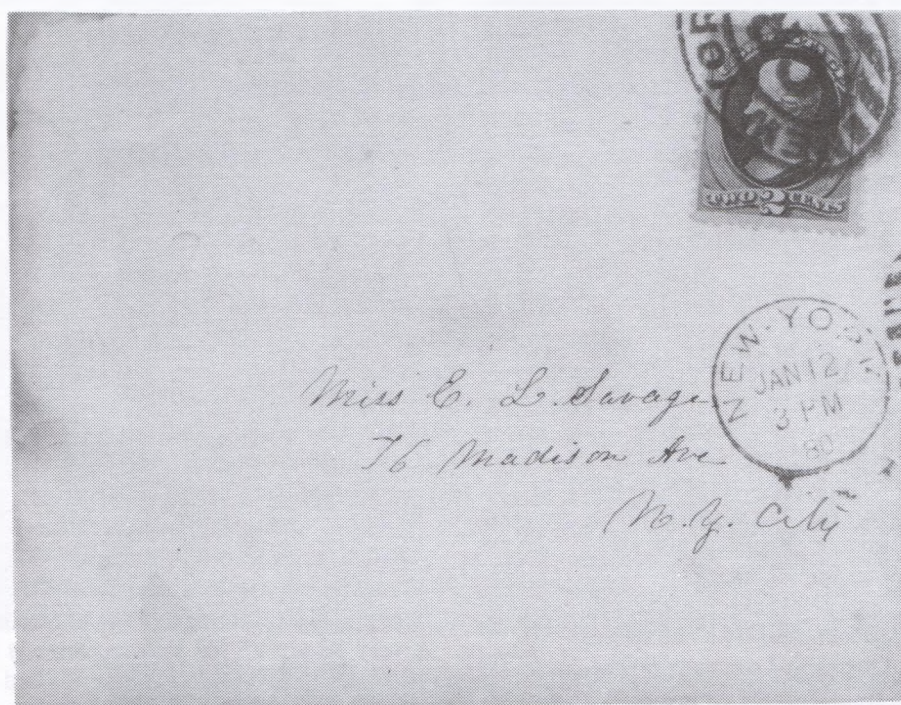 TWO 2 CENTS
NEW-YORK
JAN 12
3 PM
80
Miss E. L. Savage
76 Madison Ave
N.Y. City